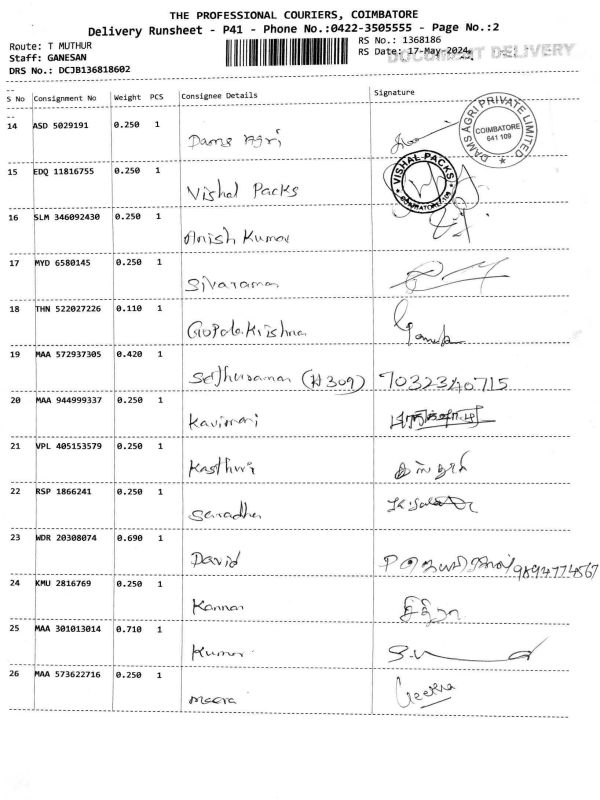 THE PROFESSIONAL COURIERS, COIMBATORE
Delivery Runsheet - P41 - Phone No.:0422-3505555 - Page No.:2
Route: T MUTHUR
Staff: GANESAN
DRS No.: DCJB136818602
RS No.: 1368186
RS Date: 17-May-2024
DOCUMENT DELIVERY
S No Consignment No Weight PCS Consignee Details Signature
14 ASD 5029191 0.250 1 Dams Agri
DAMS AGRI PRIVATE LIMITED
COIMBATORE
641 109
15 EDQ 11816755 0.250 1 Vishal Packs
VISHAL PACKS
16 SLM 346092430 0.250 1 Anish Kumar
17 MYD 6580145 0.250 1 Sivaraman
18 THN 522027226 0.110 1 Gopala Krishna
19 MAA 572937305 0.420 1 Sethuraman (H 309) 7032340715
20 MAA 944999337 0.250 1 Kavimani
21 VPL 405153579 0.250 1 Kasthuri
22 RSP 1866241 0.250 1 Saradha
23 WDR 20308074 0.690 1 David
24 KMU 2816769 0.250 1 Kannan
25 MAA 301013014 0.710 1 Kumar
26 MAA 573622716 0.250 1 meera